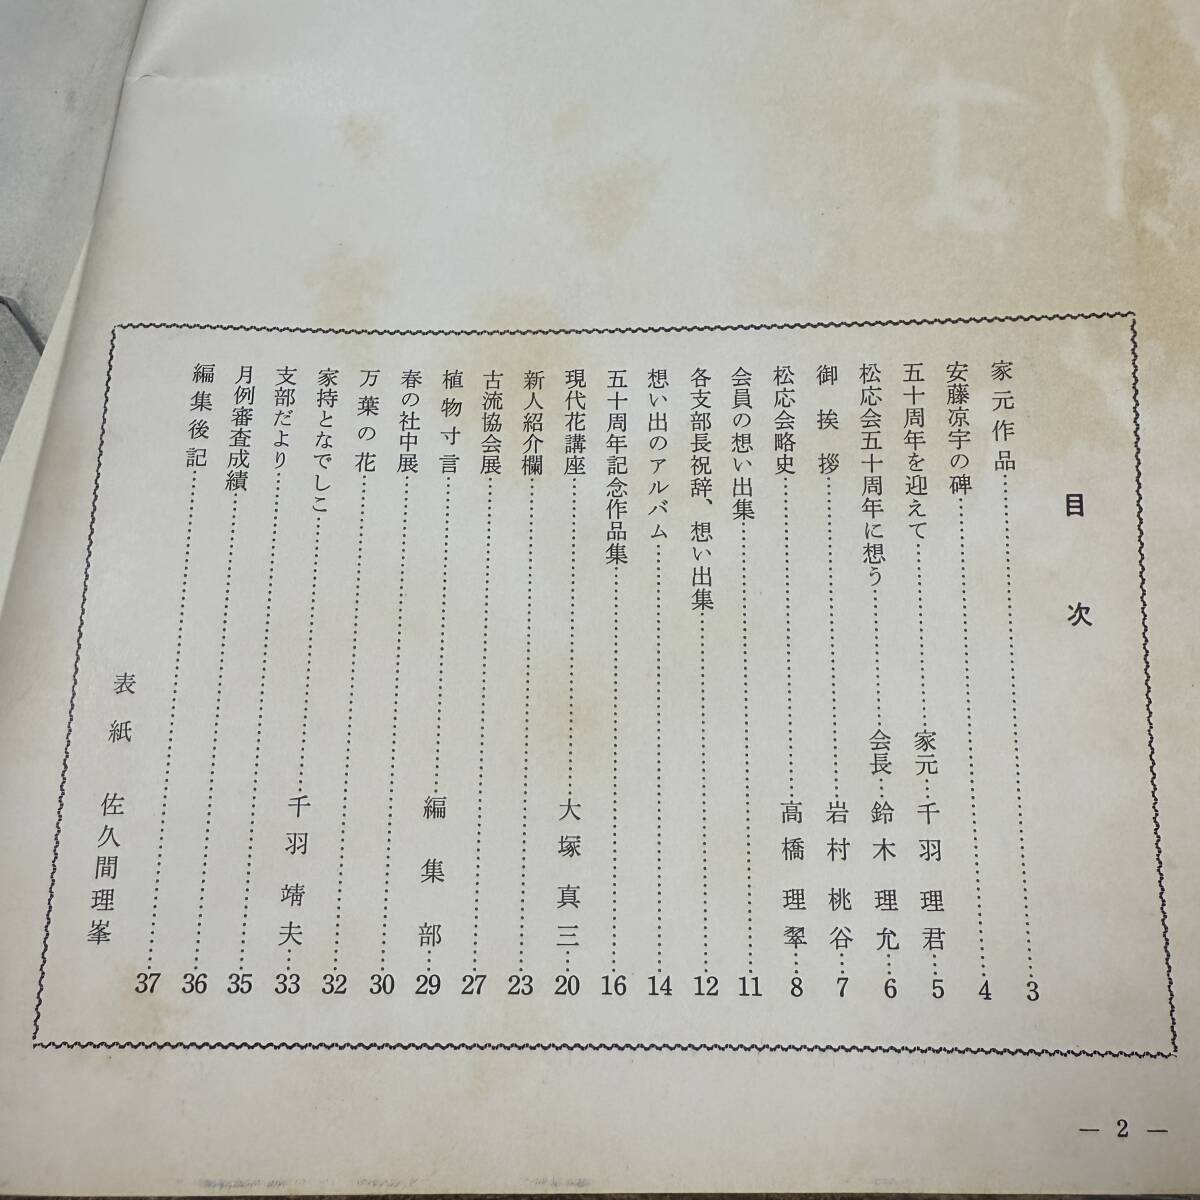 目次
家元作品……3
安藤凉宇の碑……4
五十周年を迎えて……家元…千羽理君…5
松応会五十周年に想う……会長…鈴木理允…6
御挨拶……岩村桃谷…7
松応会略史……高橋理翠…8
会員の想い出集……11
各支部長祝辞、想い出集……12
想い出のアルバム……14
五十周年記念作品集……16
現代花講座……大塚真三…20
新人紹介欄……23
古流協会展……27
植物寸言……編集部…29
春の社中展……30
万葉の花……32
家持となでしこ……千羽靖夫…33
支部だより……35
月例審査成績……36
編集後記……37
表紙 佐久間理峯
— 2 —